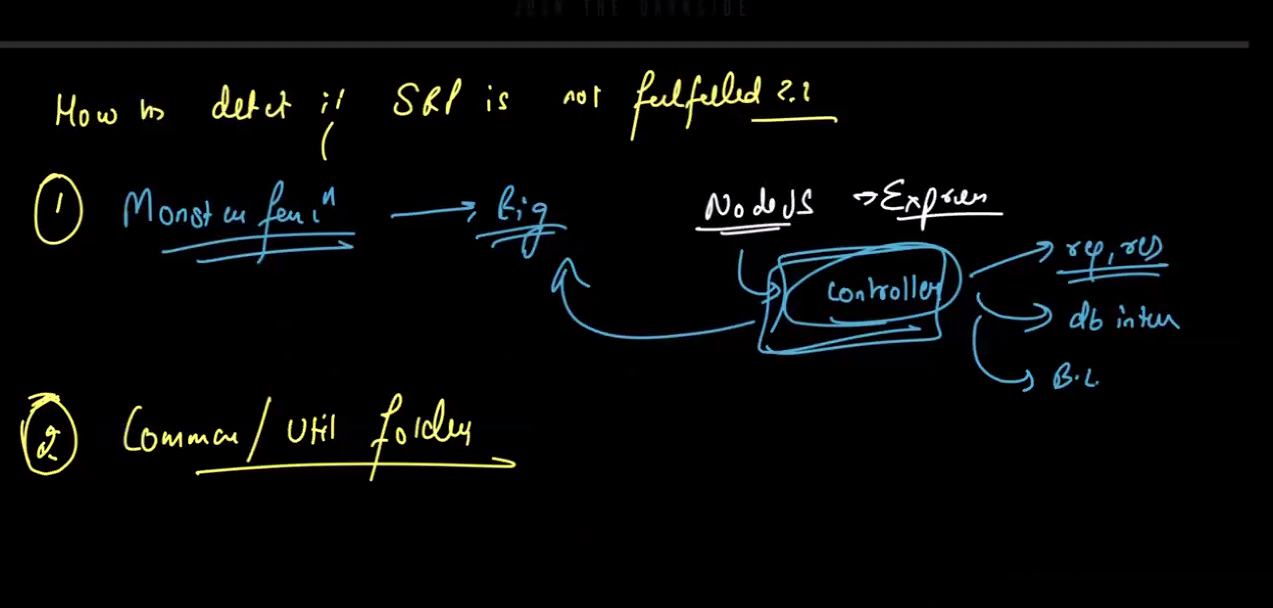 JOIN THE DARKSIDE
How to detect if SRP is not fulfilled ??
1 Monster func^n → Big
NodeJS → Express
controller
req, res
db inter
B.L.
2 Common / Util folder